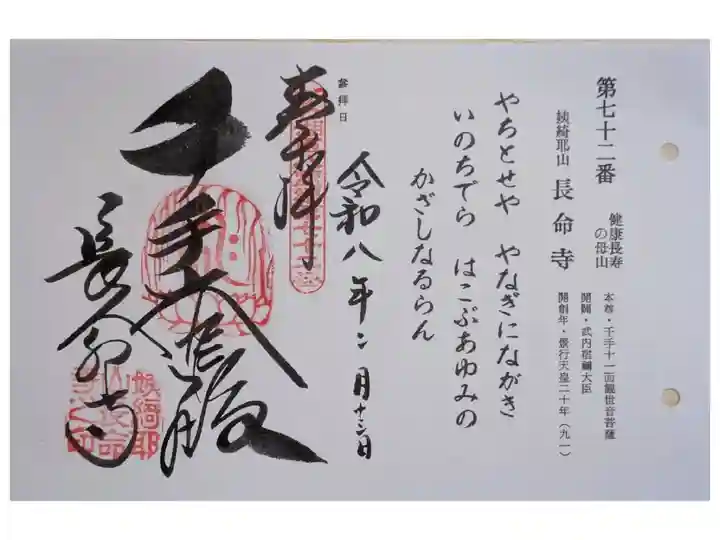 第七十二番
健康長寿
の母山
姨綺耶山 長命寺
本尊・千手十一面観世音菩薩
開闢・武内宿禰大臣
開創年・景行天皇二十年（九一）
やちとせや やなぎにながき
いのちでら はこぶあゆみの
かざしなるらん
参拝日
令和八年二月十三日
奉拝
千手大悲殿
長命寺